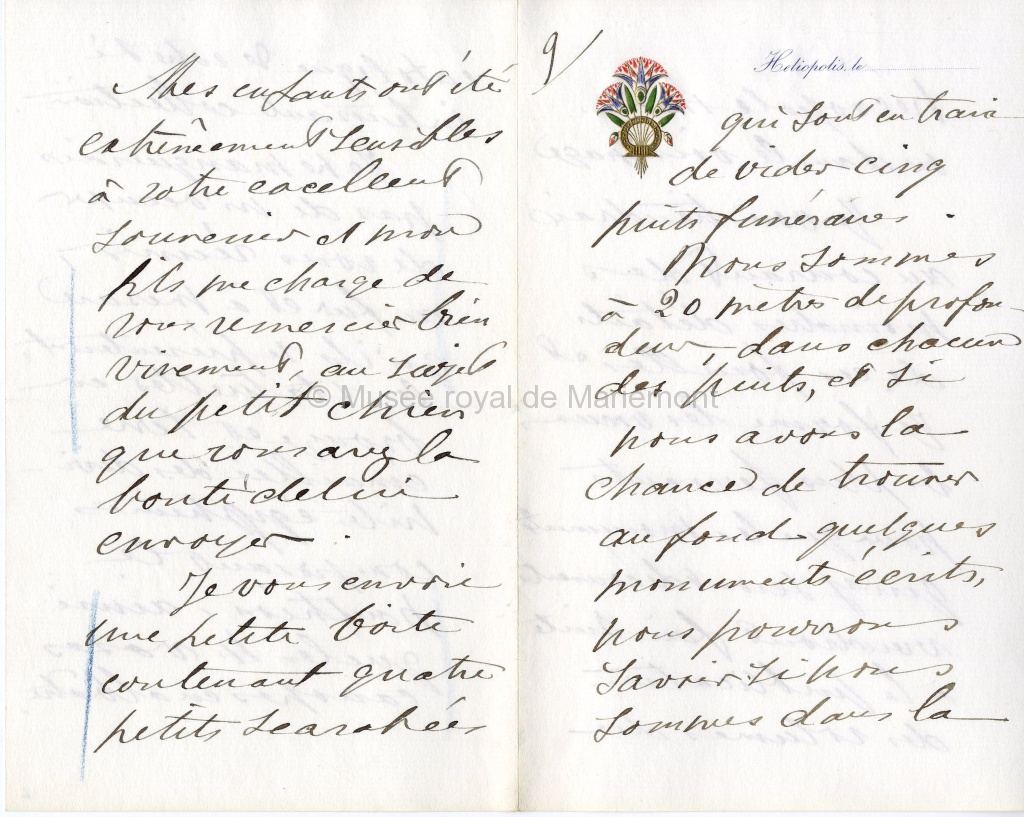 Mes enfants ont été
extrêmement sensibles
à votre excellent
souvenir et mon
fils me charge de
vous remercier bien
vivement, au sujet
du petit chien
que vous avez la
bonté de lui
envoyer.
Je vous envoie
une petite boîte
contenant quatre
petits scarabées
9/
Héliopolis, le
qui sont en train
de vider cinq
puits funéraires.
Nous sommes
à 20 mètres de profon-
deur, dans chacun
des puits, et si
nous avons la
chance de trouver
au fond quelques
monuments écrits,
nous pourrons
savoir si nous
sommes dans la
© Musée royal de Mariemont